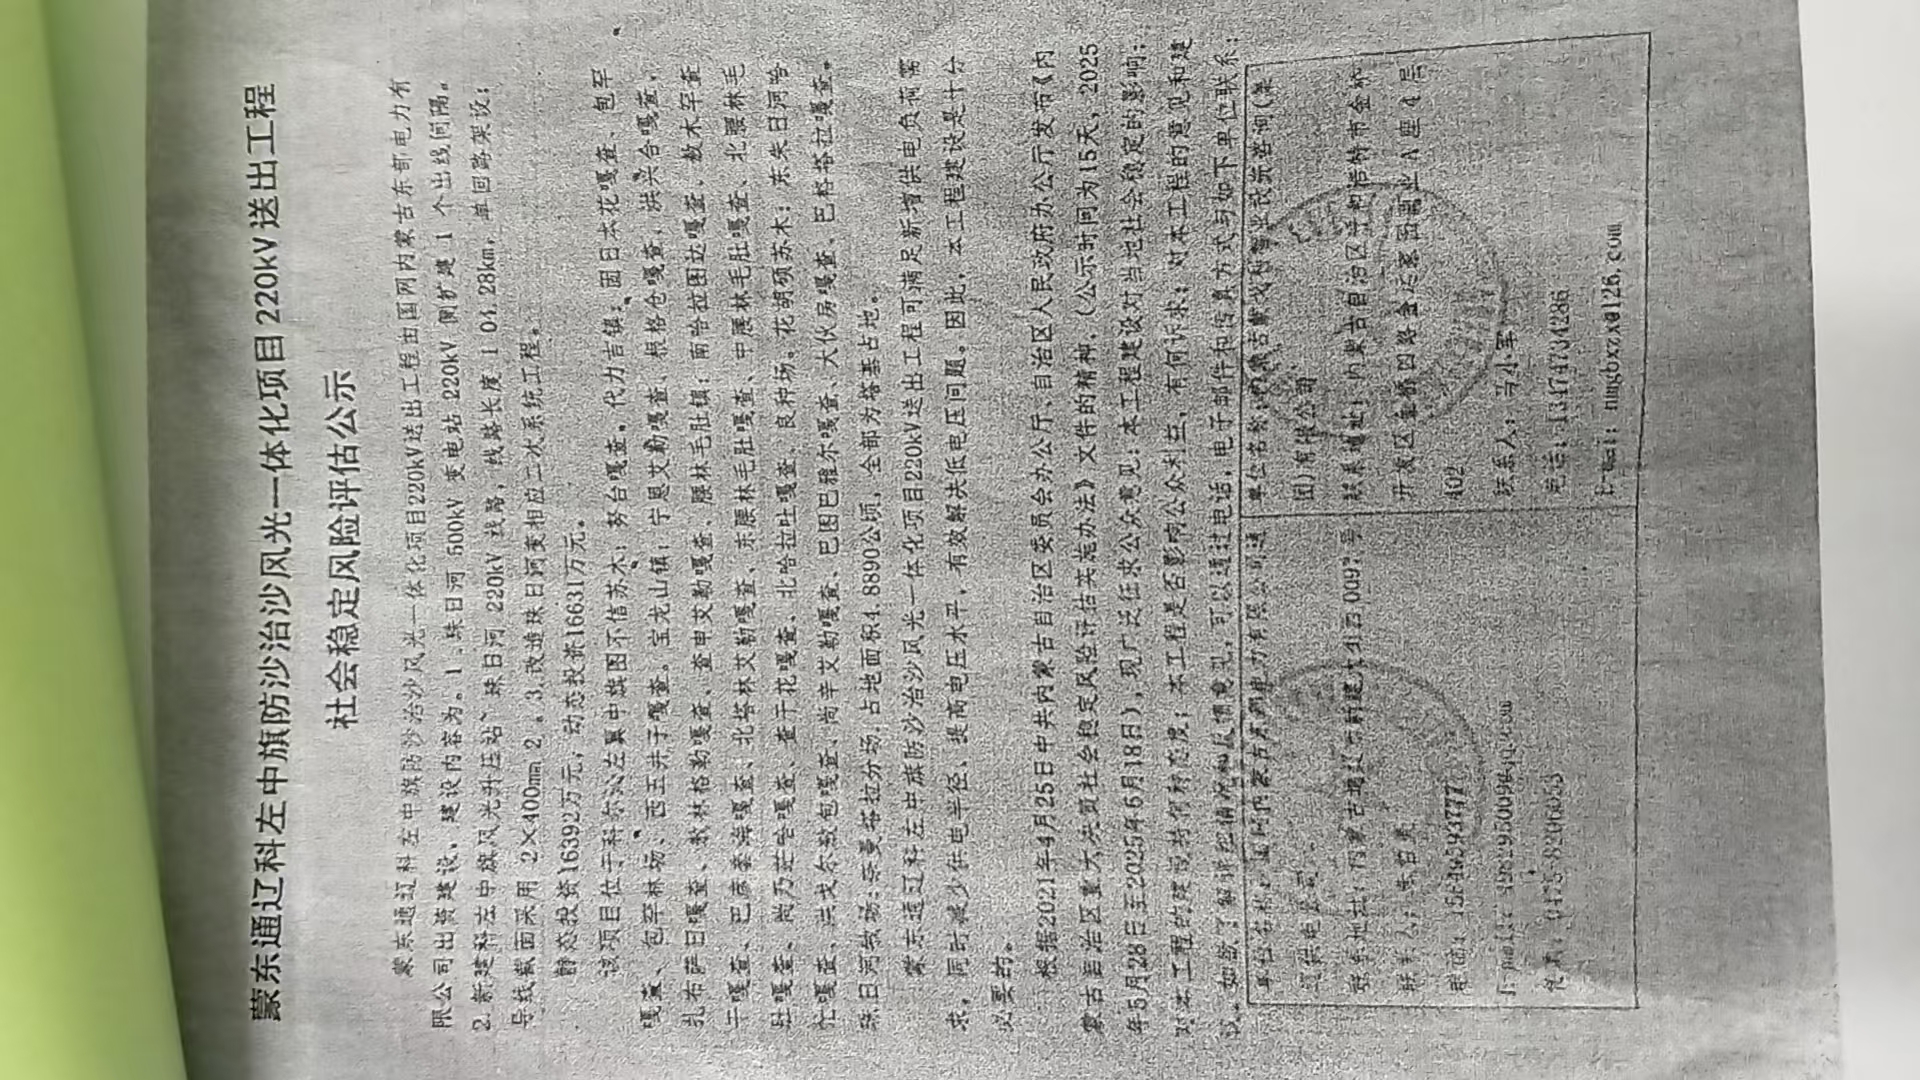 蒙东通辽科左中旗防沙治沙风光一体化项目220kV送出工程
社会稳定风险评估公示
蒙东通辽科左中旗防沙治沙风光一体化项目220kV送出工程由国网内蒙古东部电力有
限公司出资建设，建设内容为。1、珠日河 500kV 变电站 220kV 侧扩建 1 个出线间隔。
2、新建科左中旗风光升压站~珠日河 220kV 线路，线路长度 104.28km，单回路架设；
导线截面采用 2×400mm2。3、改造珠日河变相应二次系统工程。
静态投资16392万元，动态投资16631万元。
该项目位于科尔沁左翼中旗图不信苏木：努台嘎查。代力吉镇：固日古花嘎查、包罕
嘎查、包罕林场、西五井子嘎查。宝龙山镇：宁恩艾勒嘎查、根格仓嘎查，洪兴合嘎查，
扎布萨日嘎查、敖林格勒嘎查、查申艾勒嘎查、腰林毛肚镇：南哈拉图达嘎查、敖木罕查
干嘎查、巴彦套海嘎查、北塔林艾勒嘎查、东腰林毛肚嘎查、中腰林毛肚嘎查、北腰林毛
肚嘎查、尚乃茫哈嘎查、查干花嘎查、北哈拉吐嘎查、良种场。花胡硕苏木：东朱日河哈
嘎查、洪戈尔敖包嘎查、尚辛艾勒嘎查、巴图巴雅尔嘎查、大伙房嘎查、巴格塔拉嘎查。
珠日河牧场：奈曼塔拉分场，占地面积4.8890公顷，全部为塔基占地。
蒙东通辽科左中旗防沙治沙风光一体化项目220kV送出工程可满足新增供电负荷需
求，同时减少供电半径、提高电压水平，有效解决低电压问题。因此，本工程建设是十分
必要的。
根据2021年4月25日中共内蒙古自治区委员会办公厅、自治区人民政府办公厅发布《内
蒙古自治区重大决策社会稳定风险评估实施办法》文件的精神，（公示时间为15天，2025
年5月28日至2025年6月18日），现广泛征求公众意见：本工程建设对当地社会稳定的影响；
对本工程的建设持何种态度；本工程是否影响公众利益，有何诉求；对本工程的意见和建
议。如您欲了解详细情况和反馈意见，可以通过电话，电子邮件和传真方式与如下单位联系：
单位名称：国网内蒙古东部电力有限公司通
辽供电公司
联系地址：内蒙古通辽市 0097号
联系人：
电话：15849593777
传真：0475-8206053
单位名称：内蒙古 投资咨询（集
团）有限公司
联系地址：内蒙古自治区呼和浩特市金桥
开发区金桥四路金达家园商业A座4层
402
联系人：马小军
电话：13174734286
E-mail：nmgbxzx@126.com